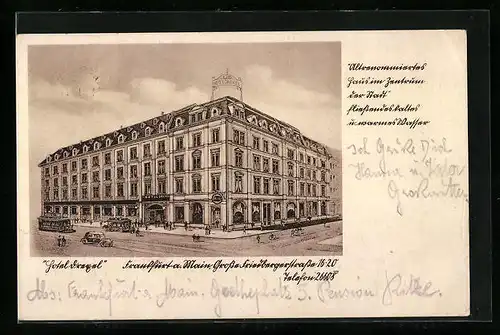 Altrenommiertes
Haus im Zentrum
der Stadt
fließendes kaltes
u. warmes Wasser
Ich Grüße Dich
Hanna u.
"Hotel Drexel" Frankfurt a. Main, Große Friedbergerstraße 18-20
Telefon 21408
Abs: Frankfurt a Main. Goetheplatz 5. Pension